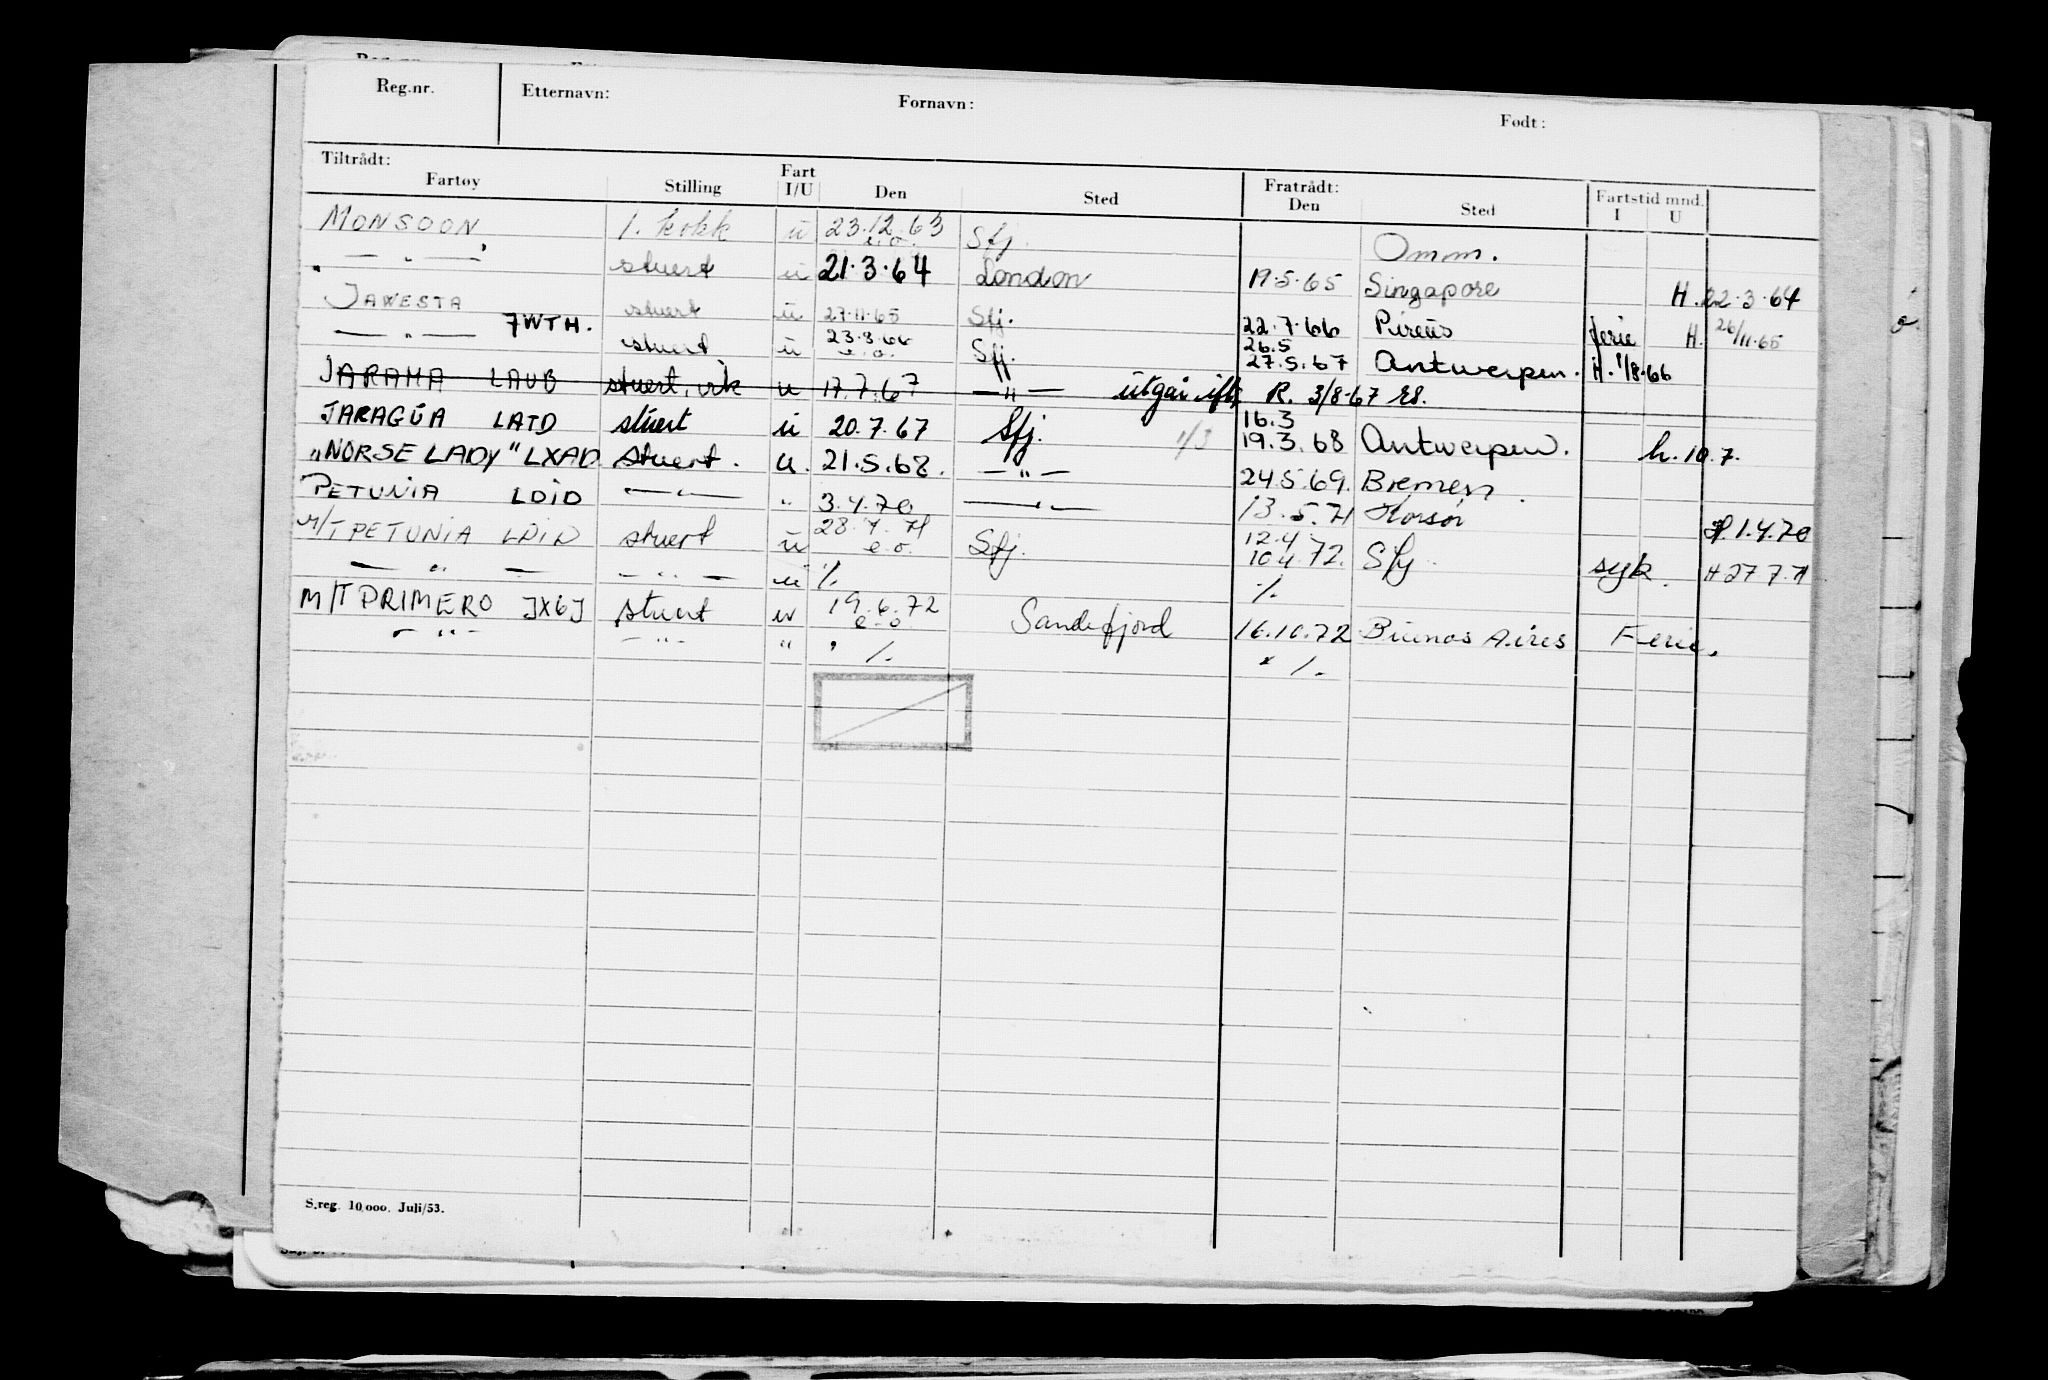 Reg.nr. Etternavn: Fornavn: Født:
Tiltrådt: Fartøy Stilling Fart I/U Den Sted Fratrådt: Den Sted Fartstid mnd. I U
MONSOON 1. kokk u 23.12.63 e.o. Sfj. Omm.
— " — stuert u 21.3.64 London 19.5.65 Singapore H. 22.3.64
JAWESTA stuert u 27.11.65 Sfj. 22.7.66 Pireüs ferie H. 26/11.65
— " — 7WTH. stuert u 23.8.66 e.o. Sfj. 26.5 27.5.67 Antwerpen. H. 1/8.66
JARAMA LAUB stuert, vik u 17.7.67 — " — utgår ifl. R. 3/8-67
JARAGUA LATD stuert u 20.7.67 Sfj. 1/3 16.3 19.3.68 Antwerpen. h. 10.7.
"NORSE LADY" LXAD stuert. u. 21.5.68. — " — 24.5.69. Bremen.
PETUNIA LDID — " — " 3.4.70 — " — 13.5.71 Korsør H 1.4.70
M/T PETUNIA LDID stuert u 28.7.71 e.o. Sfj. 12.4 10.4.72. Sfj. syk. H 27.7.71
— " — — " — u %. %.
M/T PRIMERO JXGJ stuert u 19.6.72 e.o Sandefjord 16.10.72 Buenos Aires Ferie.
— " — — " — " " %. " %.
S.reg. 10.000. Juli/53.